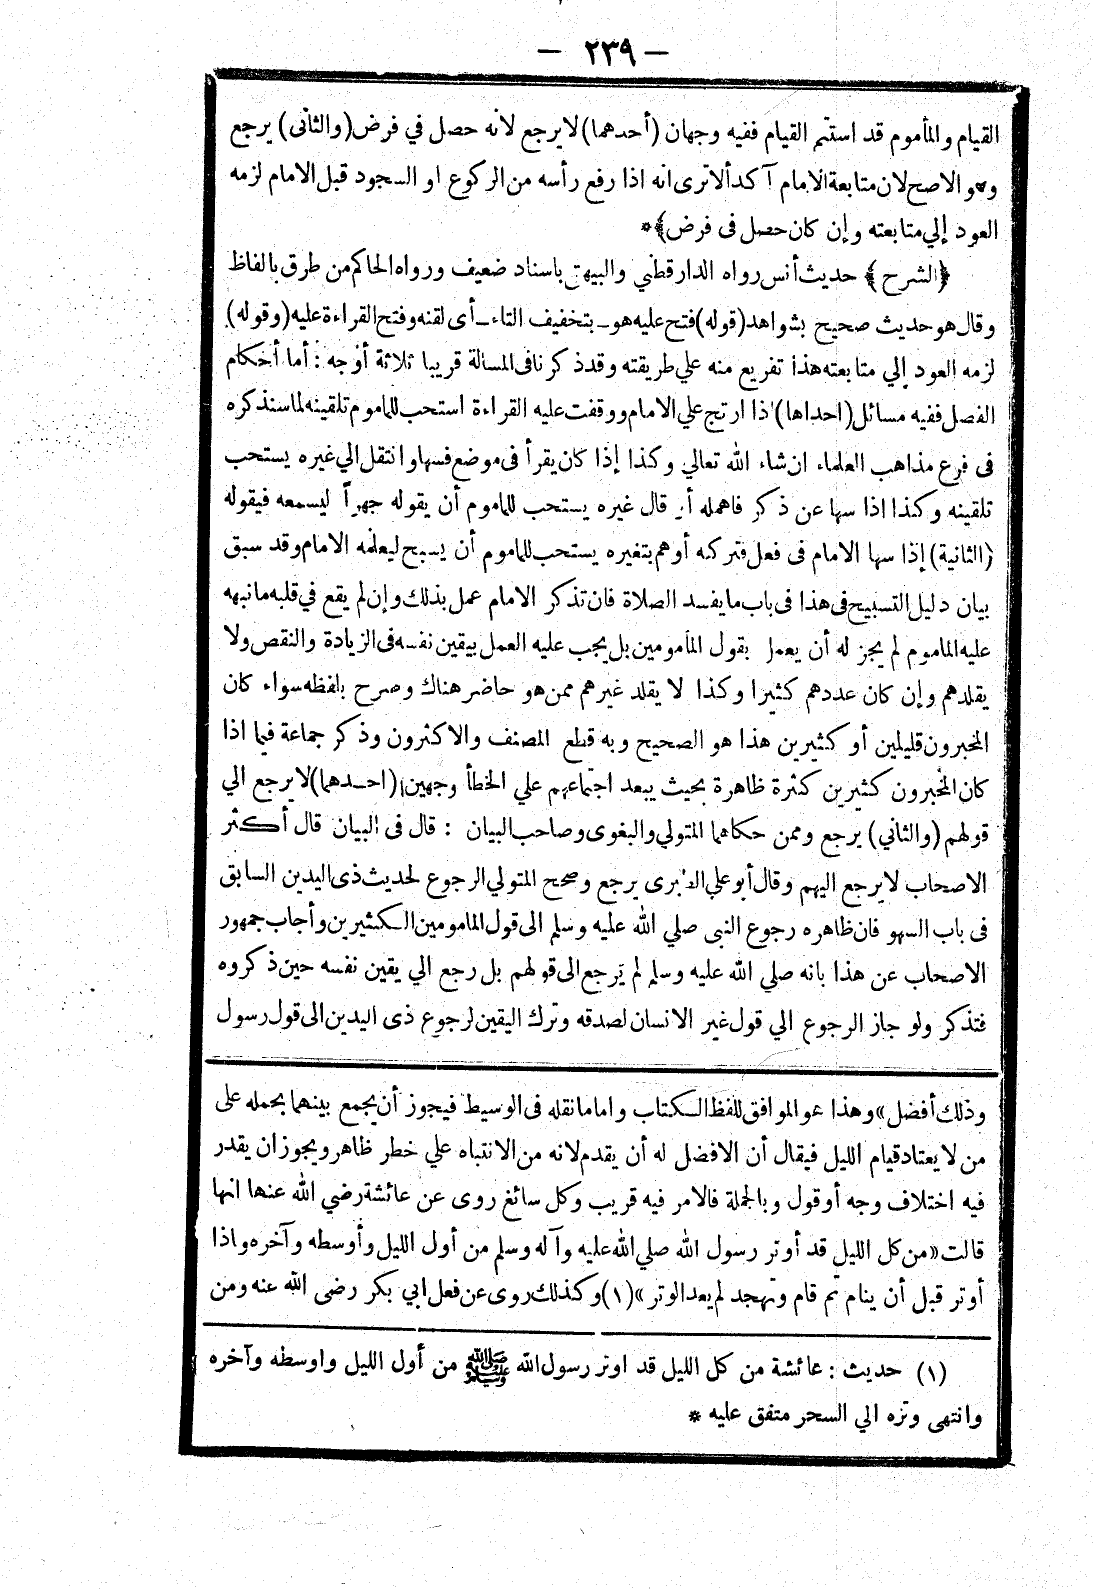 — ٢٣٩ —
القيام والمأموم قد استتم القيام ففيه وجهان (أحدهما) لا يرجع لانه حصل في فرض (والثانى) يرجع
وهو الاصح لان متابعة الامام آكد ألا ترى انه اذا رفع رأسه من الركوع او السجود قبل الامام لزمه
العود إلي متابعته وإن كان حصل فى فرض﴾*
﴿الشرح﴾ حديث أنس رواه الدارقطني والبيهقي باسناد ضعيف ورواه الحاكم من طرق بالفاظ
وقال هو حديث صحيح بشواهد (قوله) فتح عليه هو ـ بتخفيف التاء ـ أى لقنه وفتح القراءة عليه (وقوله)
لزمه العود إلي متابعته هذا تفريع منه علي طريقته وقد ذكرنا فى المسألة قريبا ثلاثة أوجه: أما أحكام
الفصل ففيه مسائل (احداها) اذا ارتج علي الامام ووقفت عليه القراءة استحب للماموم تلقينه لما سنذكره
فى فرع مذاهب العلماء ان شاء الله تعالي وكذا إذا كان يقرأ فى موضع فسها وانتقل الي غيره يستحب
تلقينه وكذا اذا سها عن ذكر فاهمله أو قال غيره يستحب للماموم أن يقوله جهراً ليسمعه فيقوله
(الثانية) إذا سها الامام فى فعل فتركه أو هم بتغيره يستحب للماموم أن يسبح ليعلمه الامام وقد سبق
بيان دليل التسبيح فى هذا فى باب ما يفسد الصلاة فان تذكر الامام عمل بذلك وإن لم يقع في قلبه ما نبهه
عليه الماموم لم يجز له أن يعمل بقول المأمومين بل يجب عليه العمل بيقين نفسه فى الزيادة والنقص ولا
يقلدهم وإن كان عددهم كثيرا وكذا لا يقلد غيرهم ممن هو حاضر هناك وصرح بلفظه سواء كان
المخبرون قليلين أو كثيرين هذا هو الصحيح وبه قطع المصنف والاكثرون وذكر جماعة فيما اذا
كان المخبرون كثيرين كثرة ظاهرة بحيث يبعد اجتماعهم علي الخطأ وجهين (احدهما) لا يرجع الي
قولهم (والثاني) يرجع وممن حكاهما المتولي والبغوى وصاحب البيان : قال فى البيان قال أكثر
الاصحاب لا يرجع اليهم وقال أبو علي الطبرى يرجع وصحح المتولي الرجوع لحديث ذى اليدين السابق
فى باب السهو فان ظاهره رجوع النبى صلي الله عليه وسلم الى قول المامومين الكثيرين وأجاب جمهور
الاصحاب عن هذا بانه صلي الله عليه وسلم لم يرجع الى قولهم بل رجع الي يقين نفسه حين ذكروه
فتذكر ولو جاز الرجوع الي قول غير الانسان لصدقه وترك اليقين لرجوع ذى اليدين الى قول رسول
وذلك أفضل» وهذا هو الموافق للفظ الكتاب واما ما نقله فى الوسيط فيجوز أن يجمع بينهما بحمله على
من لا يعتاد قيام الليل فيقال أن الافضل له أن يقدم لانه من الانتباه علي خطر ظاهر ويجوز ان يقدر
فيه اختلاف وجه أو قول وبالجملة فالامر فيه قريب وكل سائغ روى عن عائشة رضي الله عنها انها
قالت «من كل الليل قد أوتر رسول الله صلي الله عليه وآله وسلم من أول الليل وأوسطه وآخره واذا
أوتر قبل أن ينام ثم قام وتهجد لم يعد الوتر» (١) وكذلك روى عن فعل ابي بكر رضى الله عنه ومن
(١) حديث : عائشة من كل الليل قد اوتر رسول الله ﷺ من أول الليل واوسطه وآخره
وانتهى وتره الي السحر متفق عليه *